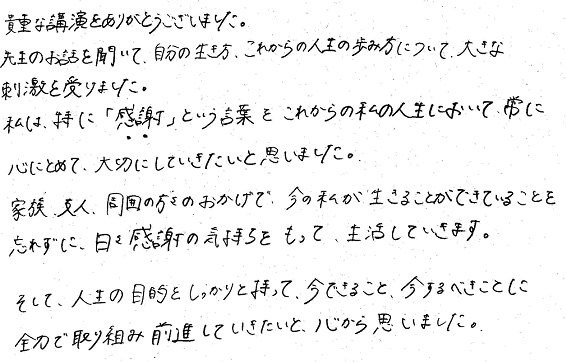 貴重な講演をありがとうございました。
先生のお話を聞いて、自分の生き方、これからの人生の歩み方について、大きな
刺激を受けました。
私は、特に「感謝」という言葉をこれからの私の人生において、常に
心にとめて、大切にしていきたいと思いました。
家族、友人、周囲の方々のおかげで、今の私が生きることができていることを
忘れずに、日々感謝の気持ちをもって、生活していきます。
そして、人生の目的をしっかりと持って、今できること、今するべきことに
全力で取り組み前進していきたいと、心から思いました。